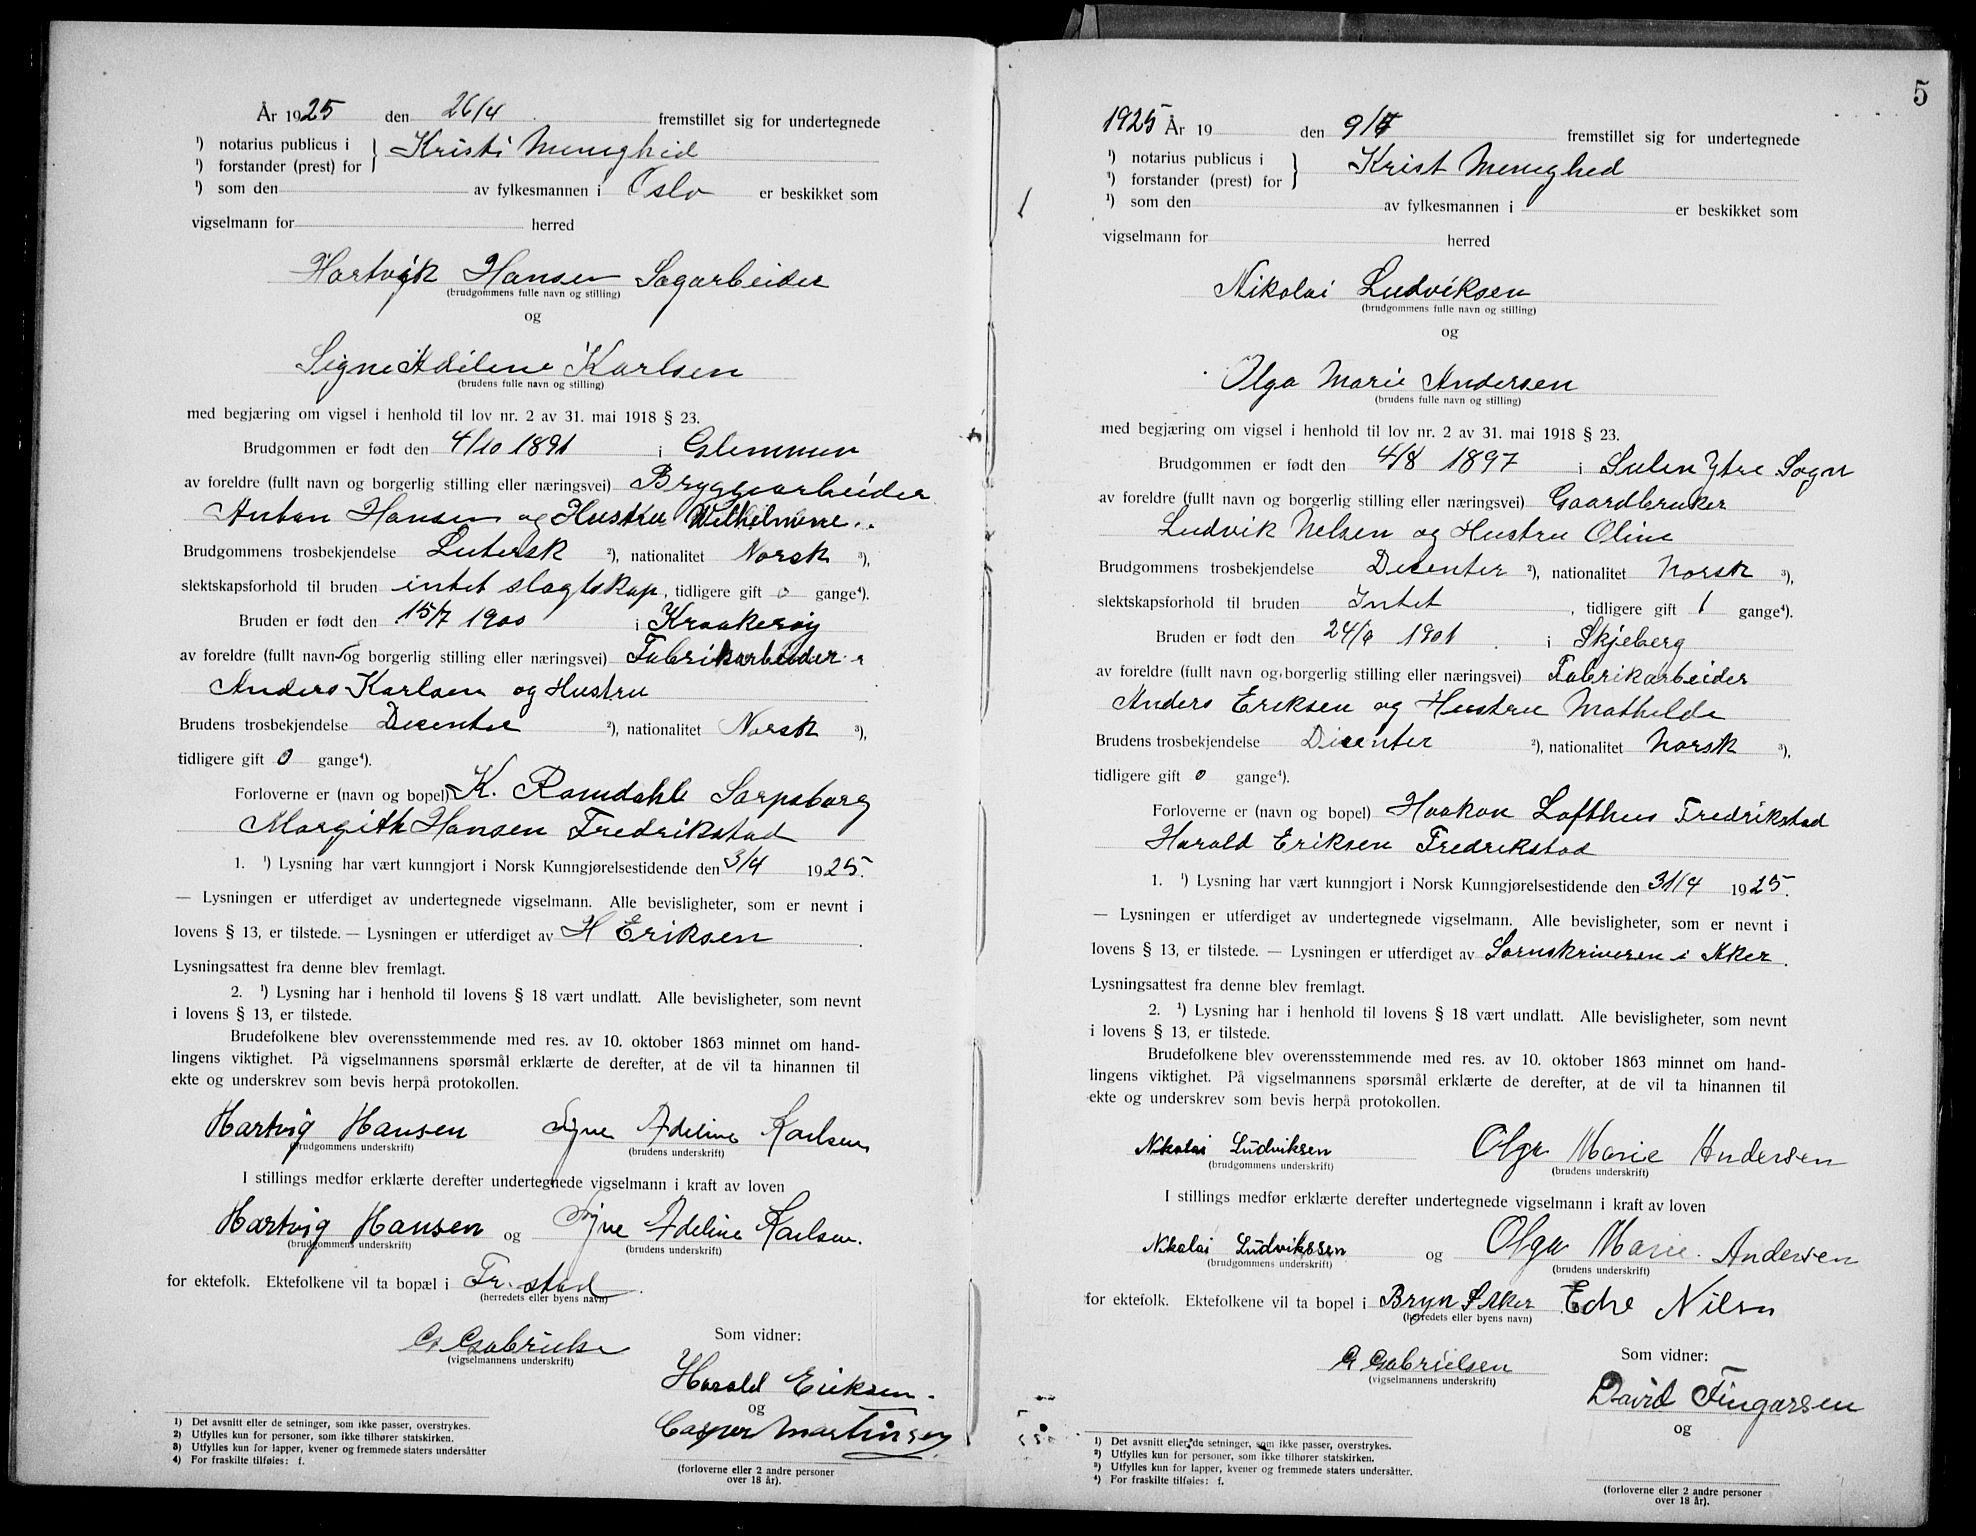 År 1925 den 26/4 fremstillet sig for undertegnede
¹) notarius publicus i
¹) forstander (prest) for } Kristi Menighed
¹) som den av fylkesmannen i Oslo er beskikket som
vigselmann for herred
Hartvik Hansen Sagarbeider
(brudgommens fulle navn og stilling)
og
Signe Adilene Karlsen
(brudens fulle navn og stilling)
med begjæring om vigsel i henhold til lov nr. 2 av 31. mai 1918 § 23.
Brudgommen er født den 4/10 1891 i Glemmen
av foreldre (fullt navn og borgerlig stilling eller næringsvei) Bryggearbeider
Anton Hansen og Hustru Wilhelmine
Brudgommens trosbekjendelse Lutersk ²), nationalitet Norsk ³),
slektskapsforhold til bruden intet slagtskap, tidligere gift 0 gange⁴).
Bruden er født den 15/7 1900 i Kraakerøy
av foreldre (fullt navn og borgerlig stilling eller næringsvei) Fabrikarbeider
Anders Karlsen og Hustru
Brudens trosbekjendelse Decenter ²), nationalitet Norsk ³),
tidligere gift 0 gange⁴).
Forloverne er (navn og bopel) K. Ramdahl Sarpsborg
Margith Hansen Fredrikstad
1. ¹) Lysning har vært kunngjort i Norsk Kunngjørelsestidende den 3/4 1925.
— Lysningen er utferdiget av undertegnede vigselmann. Alle bevisligheter, som er nevnt i
lovens § 13, er tilstede. — Lysningen er utferdiget av H Eriksen
Lysningsattest fra denne blev fremlagt.
2. ¹) Lysning har i henhold til lovens § 18 vært undlatt. Alle bevisligheter, som nevnt
i lovens § 13, er tilstede.
Brudefolkene blev overensstemmende med res. av 10. oktober 1863 minnet om hand-
lingens viktighet. På vigselmannens spørsmål erklærte de derefter, at de vil ta hinannen til
ekte og underskrev som bevis herpå protokollen.
Hartvig Hansen Signe Adeline Karlsen
(brudgommens underskrift) (brudens underskrift)
I stillings medfør erklærte derefter undertegnede vigselmann i kraft av loven
Hartvig Hansen og Signe Adeline Karlsen.
(brudgommens underskrift) (brudens underskrift)
for ektefolk. Ektefolkene vil ta bopæl i Fr.stad
(herredets eller byens navn)
G Gabrielse
(vigselmannens underskrift)
Som vidner:
Harald Eriksen
og
Casper Martinsen
(forloverne eller 2 andre personer
over 18 år).
1) Det avsnitt eller de setninger, som ikke passer, overstrykes.
2) Utfylles kun for personer, som ikke tilhører statskirken.
3) Utfylles kun for lapper, kvener og fremmede staters undersåtter
4) For fraskilte tilføies: f.
5
1925 År 19 den 9/ fremstillet sig for undertegnede
¹) notarius publicus i
¹) forstander (prest) for } Krist Menighed
¹) som den av fylkesmannen i er beskikket som
vigselmann for herred
Nikolai Ludviksen
(brudgommens fulle navn og stilling)
og
Olga Marie Andersen
(brudens fulle navn og stilling)
med begjæring om vigsel i henhold til lov nr. 2 av 31. mai 1918 § 23.
Brudgommen er født den 4/8 1897 i Sulen Ytre Sogn
av foreldre (fullt navn og borgerlig stilling eller næringsvei) Gaardbruker
Ludvik Nelsen og Hustru Oline
Brudgommens trosbekjendelse Decenter ²), nationalitet Norsk ³),
slektskapsforhold til bruden Intet, tidligere gift 1 gange⁴).
Bruden er født den 24/6 1901 i Skjeberg
av foreldre (fullt navn og borgerlig stilling eller næringsvei) Fabrikarbeider
Anders Eriksen og Hustru Mathilde
Brudens trosbekjendelse Dicenter ²), nationalitet Norsk ³),
tidligere gift 0 gange⁴).
Forloverne er (navn og bopel) Haakon Lofthus Fredrikstad
Harald Eriksen Fredrikstad
1. ¹) Lysning har vært kunngjort i Norsk Kunngjørelsestidende den 31/4 1925.
— Lysningen er utferdiget av undertegnede vigselmann. Alle bevisligheter, som er nevnt i
lovens § 13, er tilstede. — Lysningen er utferdiget av Sornskriveren i Aker.
Lysningsattest fra denne blev fremlagt.
2. ¹) Lysning har i henhold til lovens § 18 vært undlatt. Alle bevisligheter, som nevnt
i lovens § 13, er tilstede.
Brudefolkene blev overensstemmende med res. av 10. oktober 1863 minnet om hand-
lingens viktighet. På vigselmannens spørsmål erklærte de derefter, at de vil ta hinannen til
ekte og underskrev som bevis herpå protokollen.
Nikolai Ludviksen Olga Marie Andersen
(brudgommens underskrift) (brudens underskrift)
I stillings medfør erklærte derefter undertegnede vigselmann i kraft av loven
Nikolai Ludvikssen og Olga Marie Andersen
(brudgommens underskrift) (brudens underskrift)
for ektefolk. Ektefolkene vil ta bopel i Bryn Aker Nilsen
(herredets eller byens navn)
G Gabrielsen
(vigselmannens underskrift)
Som vidner:
David Fingarsen
og
(forloverne eller 2 andre personer
over 18 år).
¹) Det avsnitt eller de setninger, som ikke passer, overstrykes.
²) Utfylles kun for personer, som ikke tilhører statskirken.
³) Utfylles kun for lapper, kvener og fremmede staters undersåtter.
⁴) For fraskilte tilføies: f.